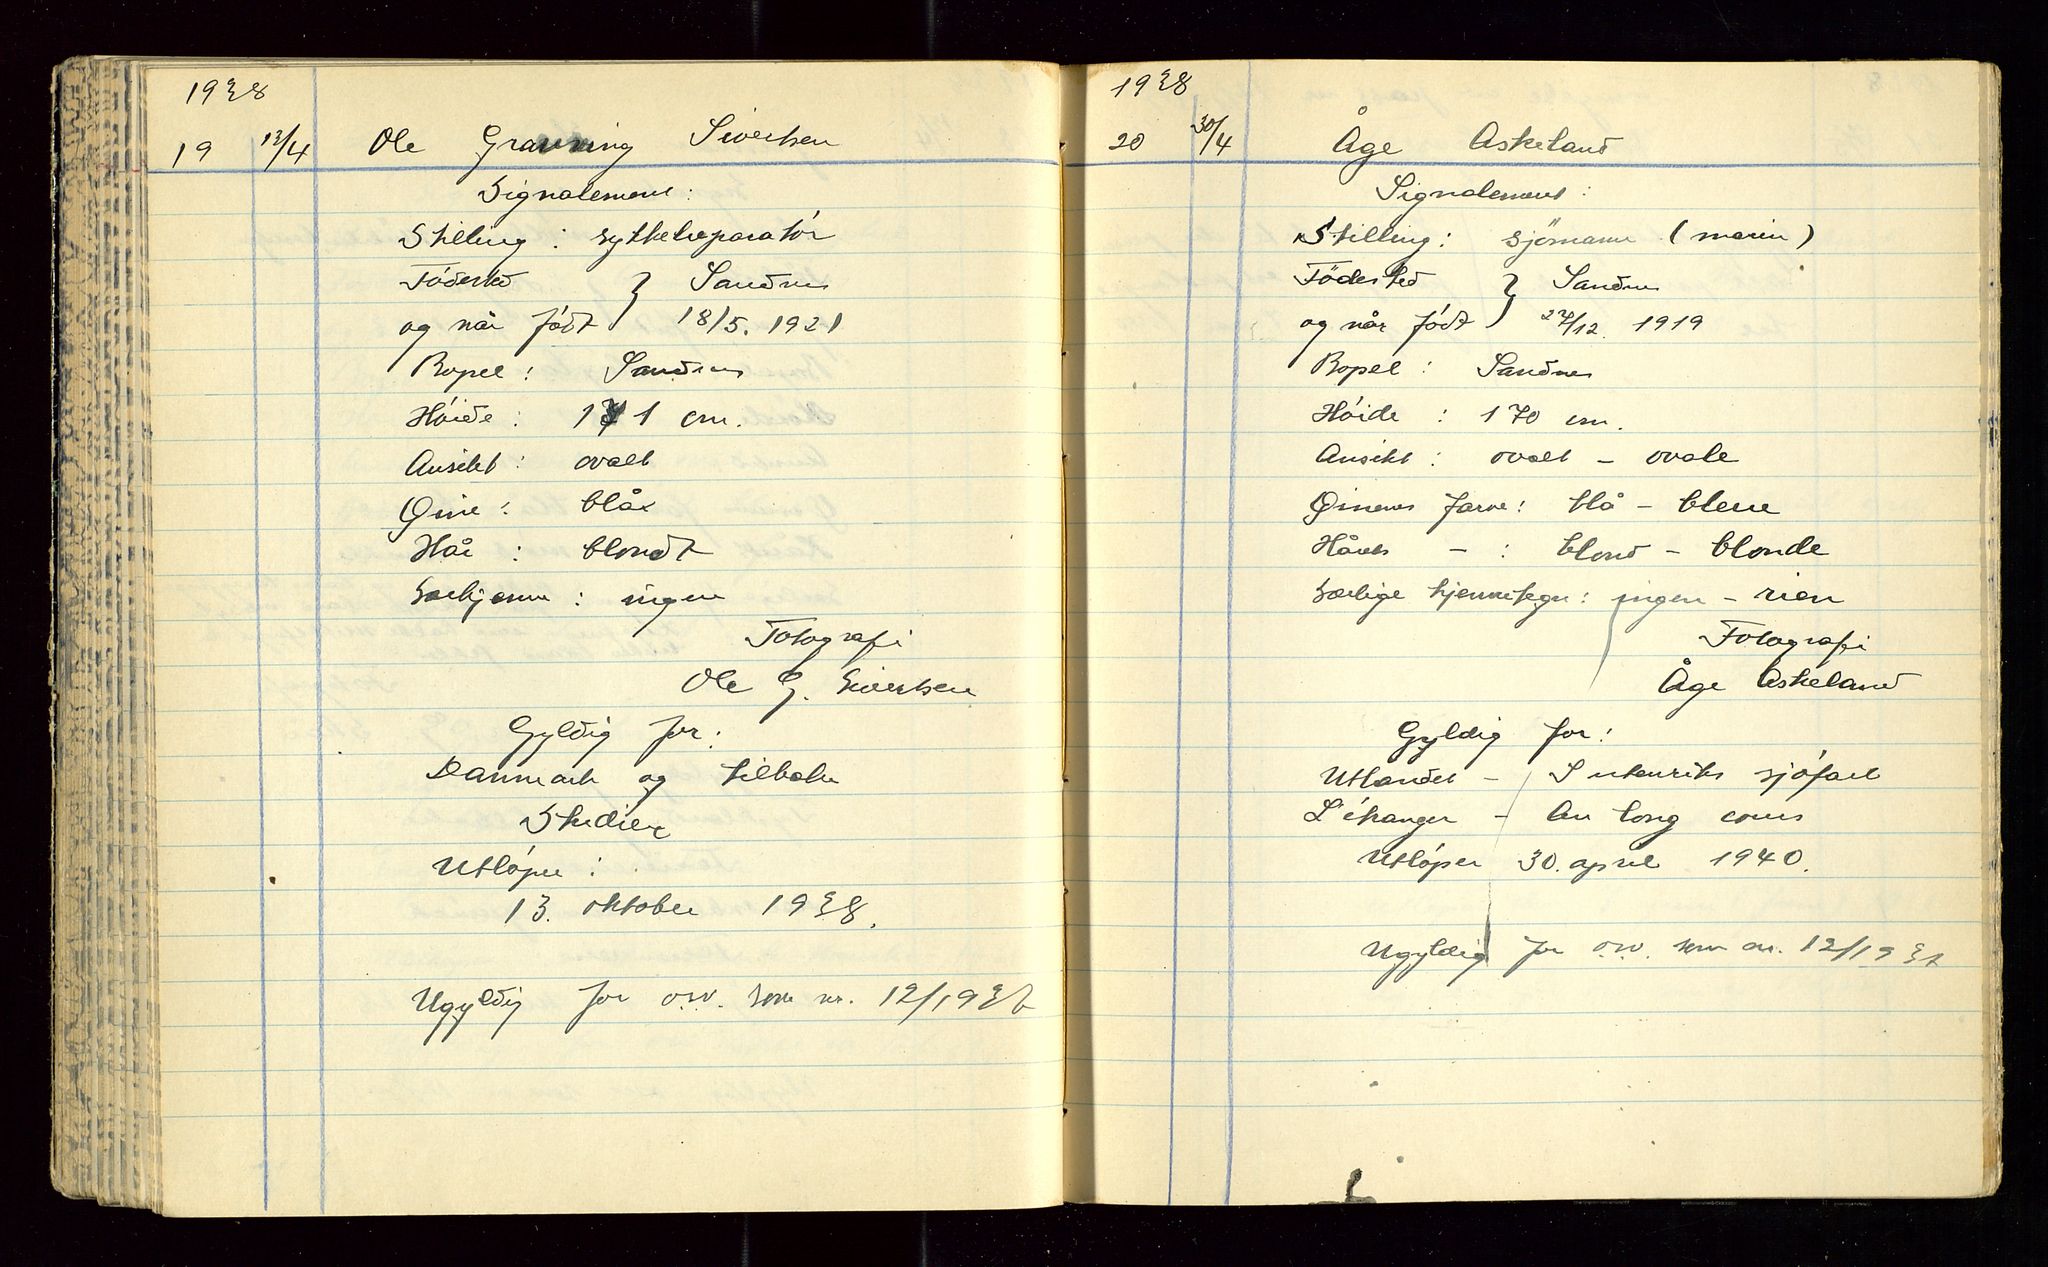 1938
19 13/4 Ole Gravning Sivertsen
Signalement:
Stilling: sykkelreparatór
Fódested } Sandnes
og når fódt } 18/5. 1921
Bopel: Sandnes
Hóide: 171 cm.
Ansikt: ovalt
Øine: blåe
Hår: blondt
Særkjenne: ingen
Fotografi
Ole G. Sivertsen
Gyldig for:
Danmark og tilbake
Studier
Utlóper:
13. oktober 1938.
Ugyldig for o.s.v. som nr. 12/1936
1938
20 30/4 Åge Askeland
Signalement:
Stilling: sjömann (marin)
Födested } Sandnes
og når fódt } 27/12. 1919
Bopel: Sandnes
Hóide: 170 cm.
Ansikt: ovalt - ovale
Øinenes farve: blå - bleue
Hårets - : blond - blonde
Særlige kjennetegn: ingen - rien
Fotografi
Åge Askeland
Gyldig for:
Utlandet - I utenriks sjófart
L'étranger - Au long cours
Utlóper 30. april 1940.
Ugyldig for o.s.v. som nr. 12/193